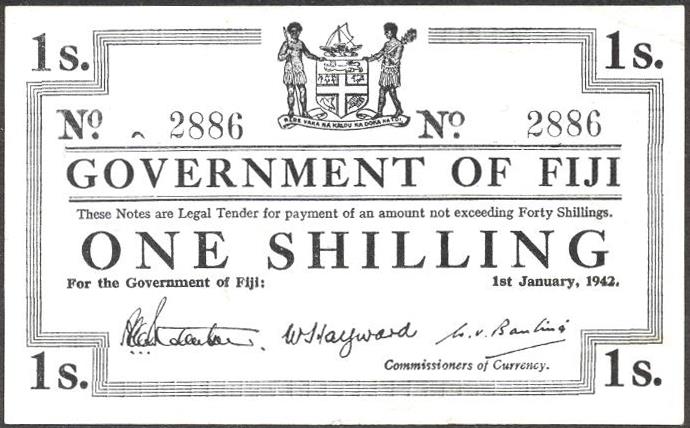 1s. 1s.
RERE VAKA NA KALOU KA DOKA NA TUI
Nº 2886 Nº 2886
GOVERNMENT OF FIJI
These Notes are Legal Tender for payment of an amount not exceeding Forty Shillings.
ONE SHILLING
For the Government of Fiji: 1st January, 1942.
WSHayward
Commissioners of Currency.
1s. 1s.